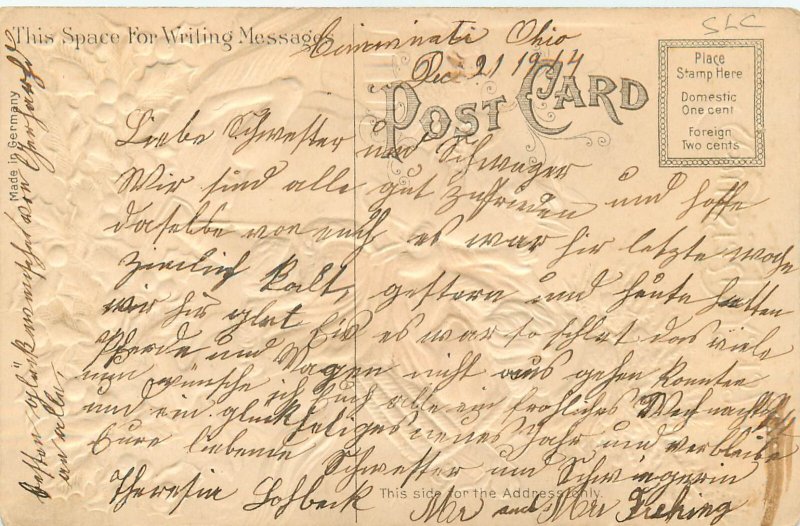 SLC
This Space For Writing Messages
Cincinnati Ohio
Dec 21 1914
POST CARD
Place
Stamp Here
Domestic
One cent
Foreign
Two cents
Made in Germany
Liebe Schwester und Schwager
Wir sind alle gut zufrieden und hoffe
daselbe von euch es war hir letzte woche
ziemlich kalt, gestern und heute hatten
wir hir glat Eis es war so schlat das viele
Pferde und Wagen nicht aus gehen konnten
nun wünsche ich Euch alle ein fröhliches Weihnachts
und ein glückseliges neues Jahr und verbleibe
Eure liebende Schwester und Schwägerin
Theresia Lohbeck
This side for the Address only.
Mr and Mrs
Besten glückwunsch von
an alle,